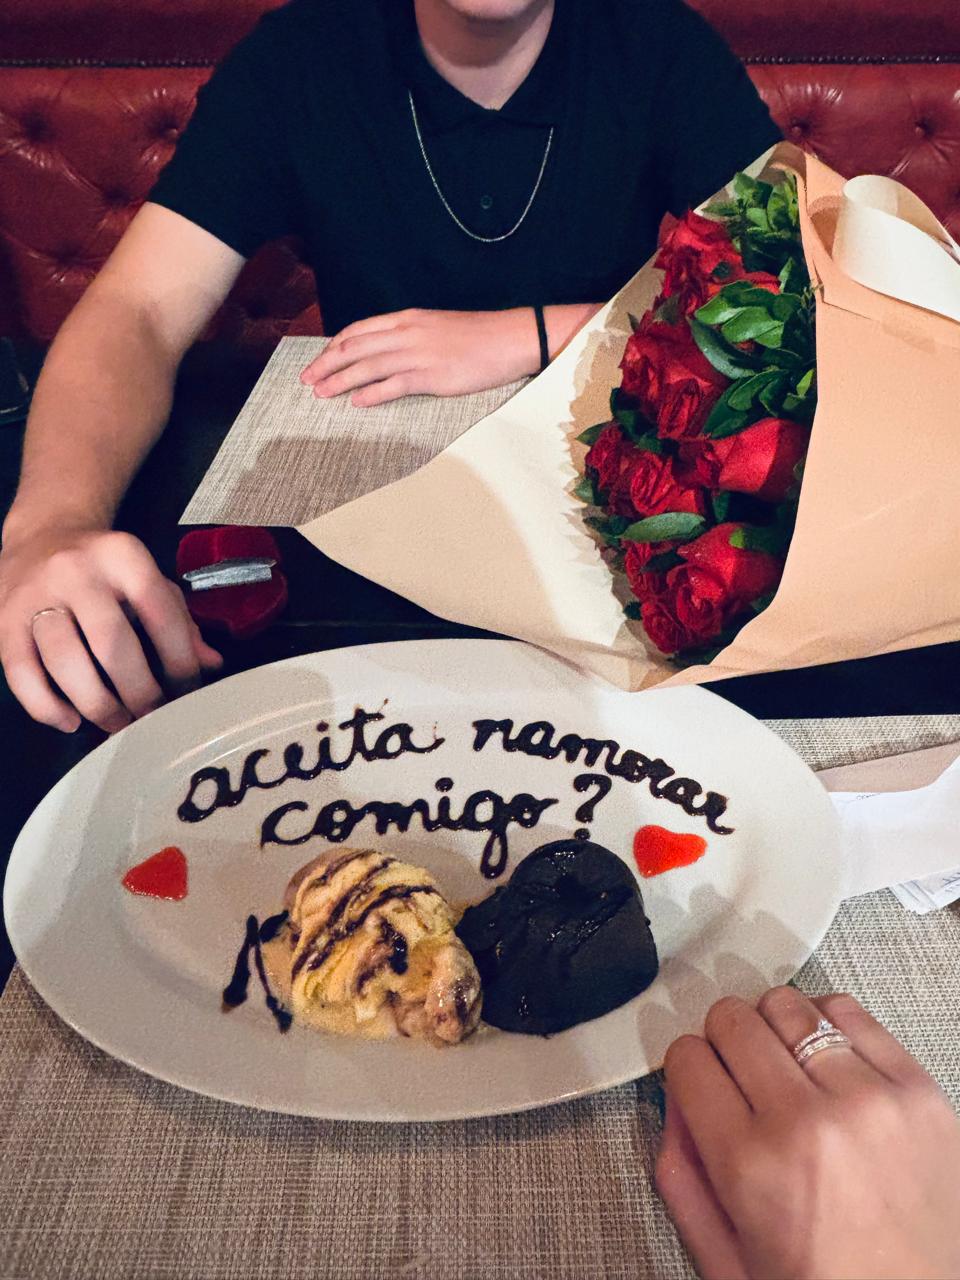 aceita namorar
comigo?